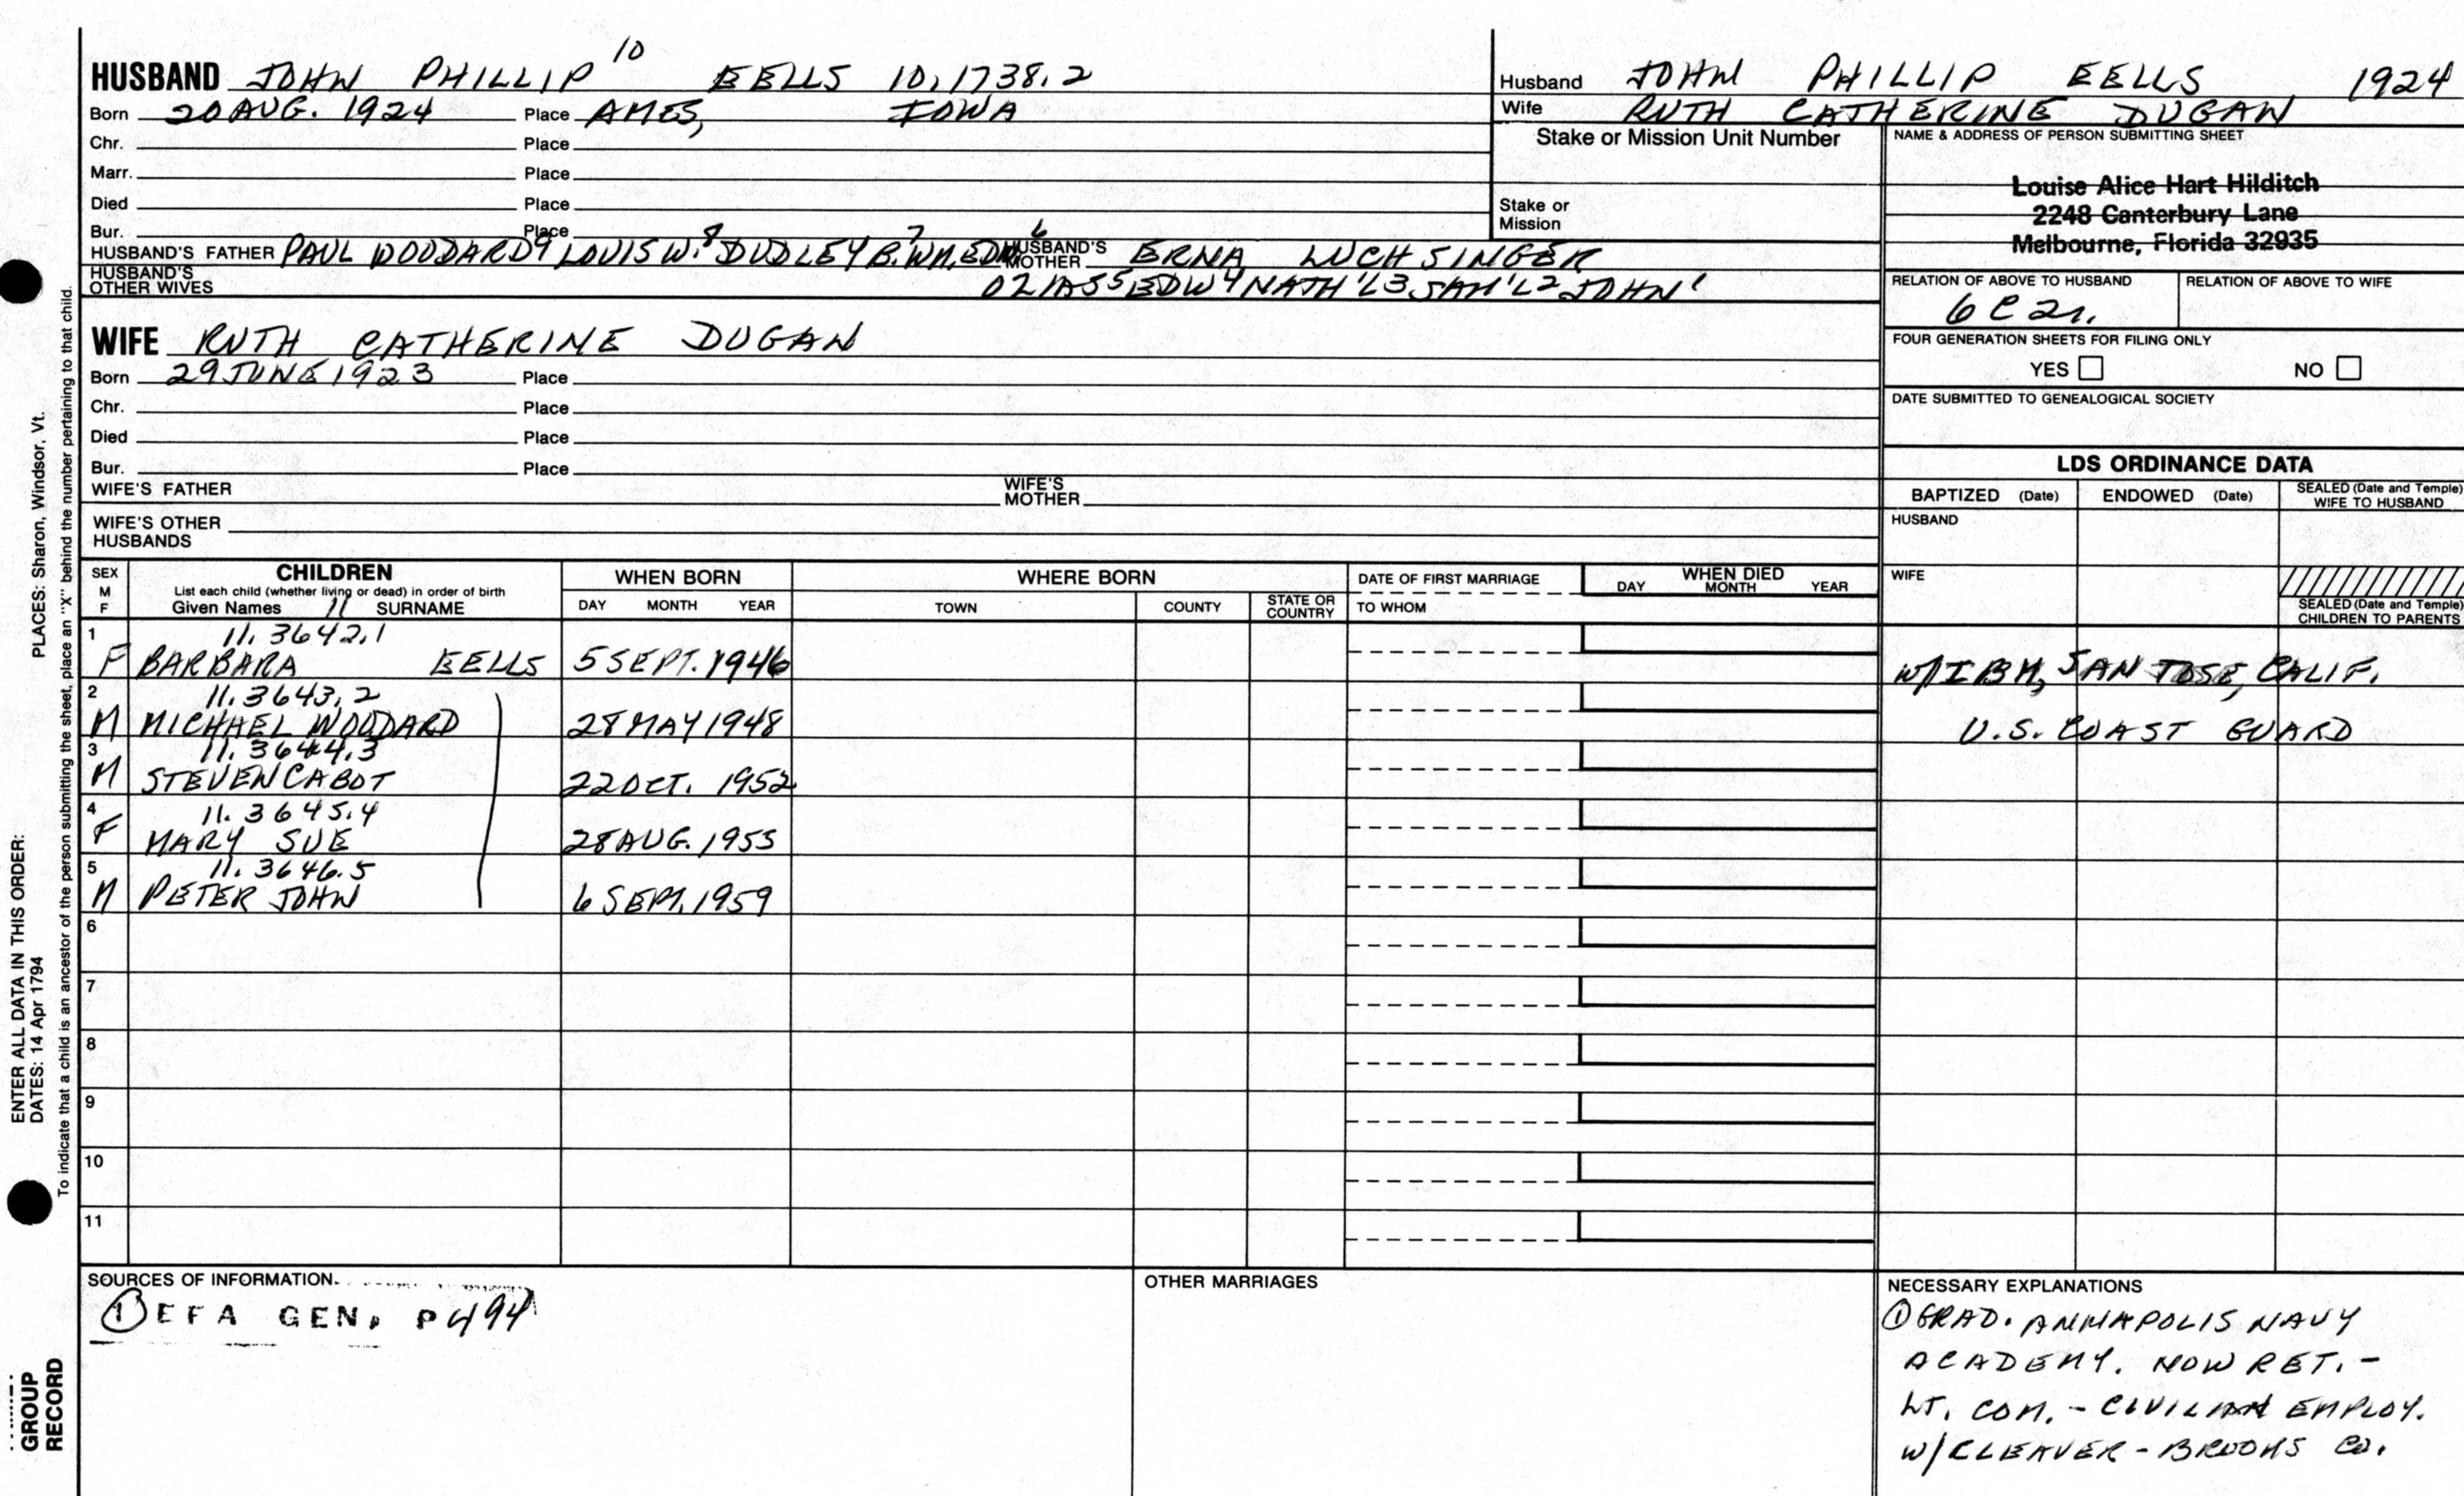 HUSBAND JOHN PHILLIP 10 EELLS 10,1738.2
Born 20 AUG. 1924 Place AMES, IOWA
Chr. Place
Marr. Place
Died Place
Bur. Place
HUSBAND'S FATHER PAUL WOODARD9 LOUIS W.8 DUDLEY B.7 WM. EDW 6 HUSBAND'S MOTHER ERNA LUCHSINGER
HUSBAND'S OTHER WIVES 5 EDW4 NATH'L3 SAM'L2 JOHN1
Husband JOHN PHILLIP EELLS 1924
Wife RUTH CATHERINE DUGAN
Stake or Mission Unit Number
Stake or Mission
NAME & ADDRESS OF PERSON SUBMITTING SHEET
Louise Alice Hart Hilditch
2248 Canterbury Lane
Melbourne, Florida 32935
RELATION OF ABOVE TO HUSBAND RELATION OF ABOVE TO WIFE
6 C 2r.
FOUR GENERATION SHEETS FOR FILING ONLY
YES NO
DATE SUBMITTED TO GENEALOGICAL SOCIETY
WIFE RUTH CATHERINE DUGAN
Born 29 JUNE 1923 Place
Chr. Place
Died Place
Bur. Place
WIFE'S FATHER WIFE'S MOTHER
WIFE'S OTHER HUSBANDS
LDS ORDINANCE DATA
BAPTIZED (Date) ENDOWED (Date) SEALED (Date and Temple) WIFE TO HUSBAND
HUSBAND
WIFE
SEALED (Date and Temple) CHILDREN TO PARENTS
SEX M F
CHILDREN
List each child (whether living or dead) in order of birth
Given Names 11 SURNAME
WHEN BORN
DAY MONTH YEAR
WHERE BORN
TOWN COUNTY STATE OR COUNTRY
DATE OF FIRST MARRIAGE
TO WHOM
WHEN DIED
DAY MONTH YEAR
1 11.3642.1
F BARBARA EELLS 5 SEPT. 1946 W/IBM, SAN JOSE, CALIF.
2 11.3643.2
M MICHAEL WOODARD 28 MAY 1948 U.S. COAST GUARD
3 11.3644.3
M STEVEN CABOT 22 OCT. 1952
4 11.3645.4
F MARY SUE 28 AUG. 1955
5 11.3646.5
M PETER JOHN 6 SEPT. 1959
6
7
8
9
10
11
SOURCES OF INFORMATION
① EFA GEN. P 494
OTHER MARRIAGES
NECESSARY EXPLANATIONS
① GRAD. ANNAPOLIS NAVY
ACADEMY. NOW RET. -
LT. COM. - CIVILIAN EMPLOY.
W/CLEAVER-BROOKS CO.
ENTER ALL DATA IN THIS ORDER:
DATES: 14 Apr 1794 PLACES: Sharon, Windsor, Vt.
To indicate that a child is an ancestor of the person submitting the sheet, place an "X" behind the number pertaining to that child.
GROUP
RECORD